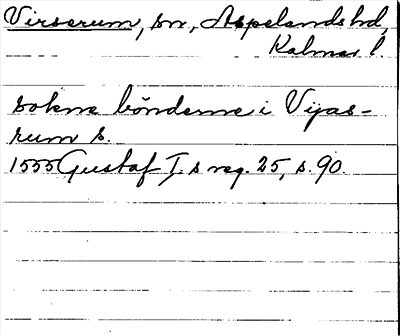 Virserum, sn, Aspelands hd,
Kalmar l.
sokne bönderne i Vijas-
rum s.
1555 Gustaf I.s reg. 25, s. 90.